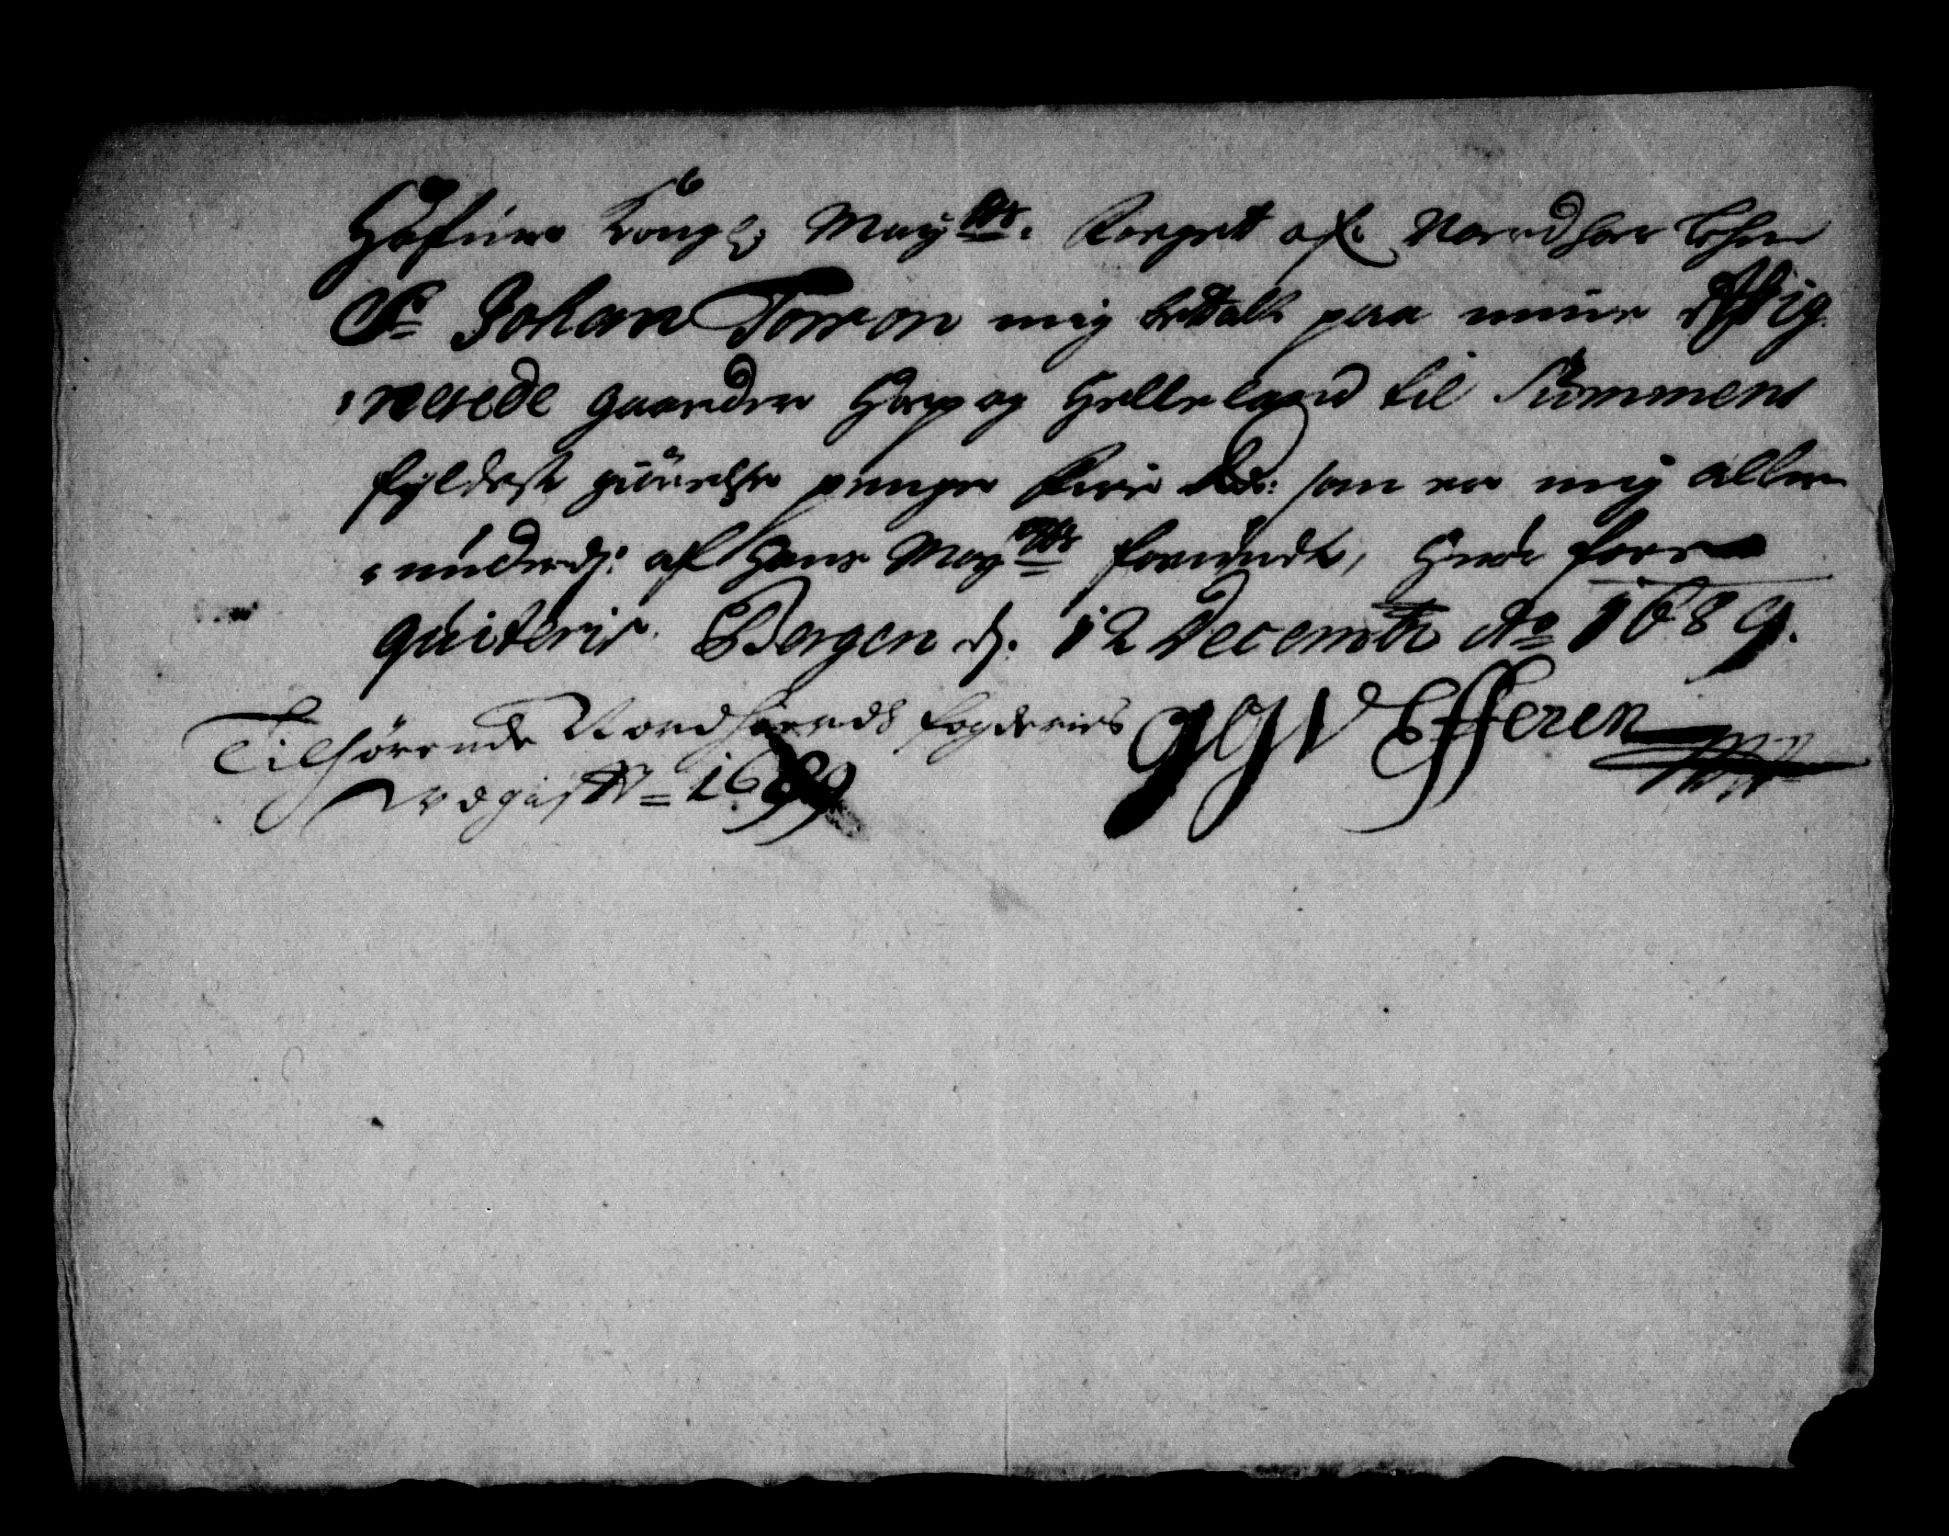 Hafuer Kongl: Mayts. Foegett af Nordhor Lehn
Sr Johan Tormon mig bettalt paa mine Assig
nerede gaarder Hop og Helleland til Summens
fyldest giörelse penge fire Rdr: som er mig aller
underd: af Hans Mayts forundt, Huor fore
quiteris. Bergen d. 12 Decembr Ao 1689.
GGV Efferen
Tilhörende Nordhords fogderies
Regist = 1689